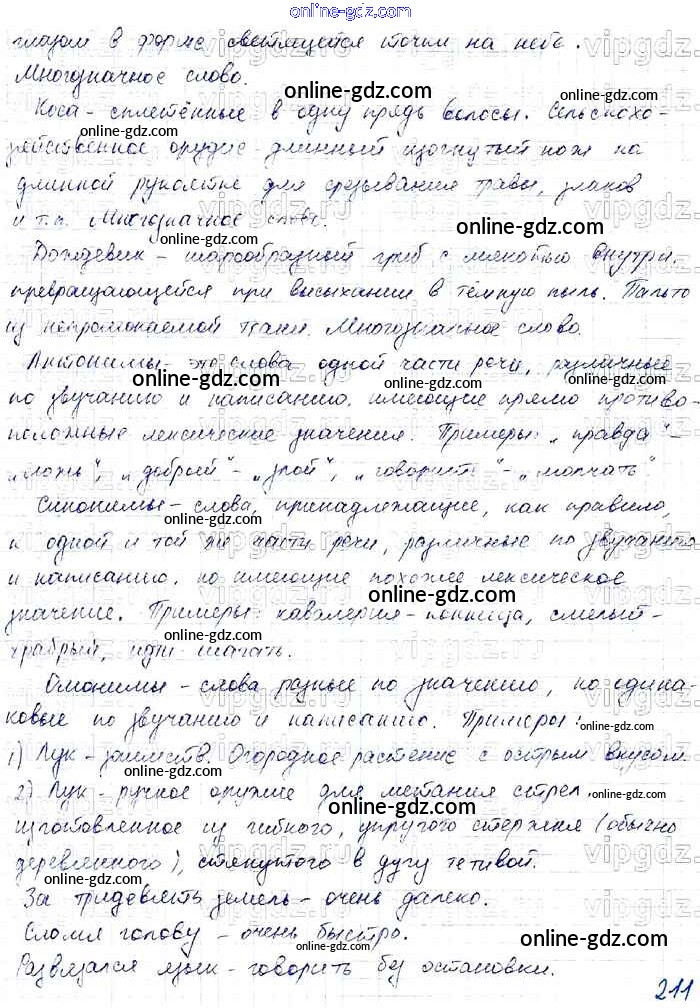 online-gdz.com
глазом в форме светящейся точки на небе.
Многозначное слово.
Коса – сплетённые в одну прядь волосы. Сельскохо-
зяйственное орудие – длинный изогнутый нож на
длинной рукоятке для срезывания травы, злаков
и т.п. Многозначное слово.
Дождевик – шарообразный гриб с мякотью внутри,
превращающейся при высыхании в тёмную пыль. Пальто
из непромокаемой ткани. Многозначное слово.
Антонимы – это слова одной части речи, различные
по звучанию и написанию, имеющие прямо противо-
положные лексические значения. Примеры: „правда" –
„ложь", „добрый" – „злой", „говорить" – „молчать"
Синонимы – слова, принадлежащие, как правило,
к одной и той же части речи, различные по звучанию
и написанию, но имеющие похожее лексическое
значение. Примеры: кавалерия – конница, смелый –
храбрый, идти – шагать.
Омонимы – слова разные по значению, но одина-
ковые по звучанию и написанию. Примеры:
1) Лук – заимств. Огородное растение с острым вкусом.
2) Лук – ручное оружие для метания стрел,
изготовленное из гибкого, упругого стержня (обычно
деревянного), стянутого в дугу тетивой.
За тридевять земель – очень далеко.
Сломя голову – очень быстро.
Развязался язык – говорить без остановки.
211